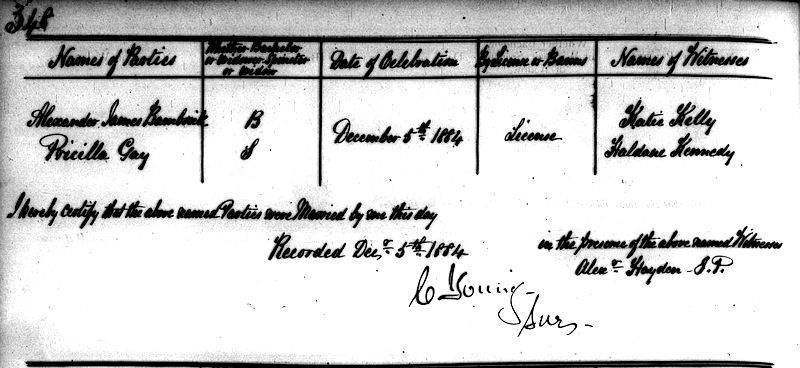 348
Names of Parties
Whether Bachelor or Widower Spinster or Widow
Date of Celebration
By License or Banns
Names of Witnesses
Alexander James Bambrick B December 5th 1884 License Katie Kelly
Pricilla Gay S Haldane Kennedy
I hereby certify that the above named Parties were Married by me this day
Recorded Decr 5th 1884 in the presence of the above named Witnesses
Alexr Hayden J.P.
C Young